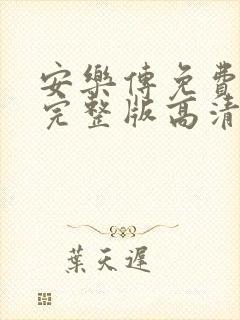 安樂傳免費
完整版高清
葉天遲